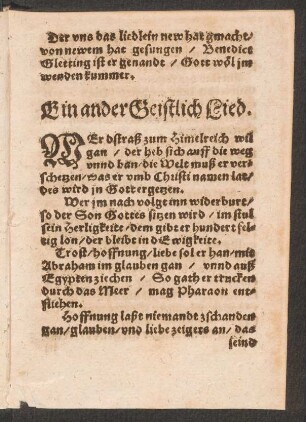 Der vns das liedlein new hat gmacht/
von newem hat gesungen / Benedict
Gletting ist er genandt / Gott wöl jm
wenden kummer.
Ein ander Geistlich Lied.
WEr dstraß zum Himelreich wil
gan / der heb sich auff die weg
vnnd ban / die Welt muß er vers
schetzen / was er vmb Christi namen lat /
des wird jn Gott ergetzen.
Wer jm nach volgt inn widerburt /
so der Son Gottes sitzen wird / im stul
sein Herligkeite / dem gibt er hundert fel-
tig lon / der bleibt in dEwigkeite.
Trost / hoffnung / liebe sol er han / mit
Abraham im glauben gan / vnnd auß
Egypten ziechen / So gath er trucken
durch das Meer / mag Pharaon ent-
fliehen.
Hoffnung laßt niemandt zschanden
gan / glauben / vnd liebe zeigets an / das
seind